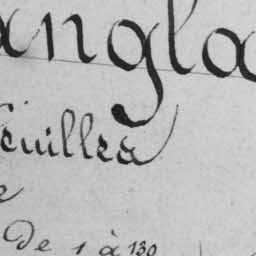 angla
feuilles
De 1 à 130